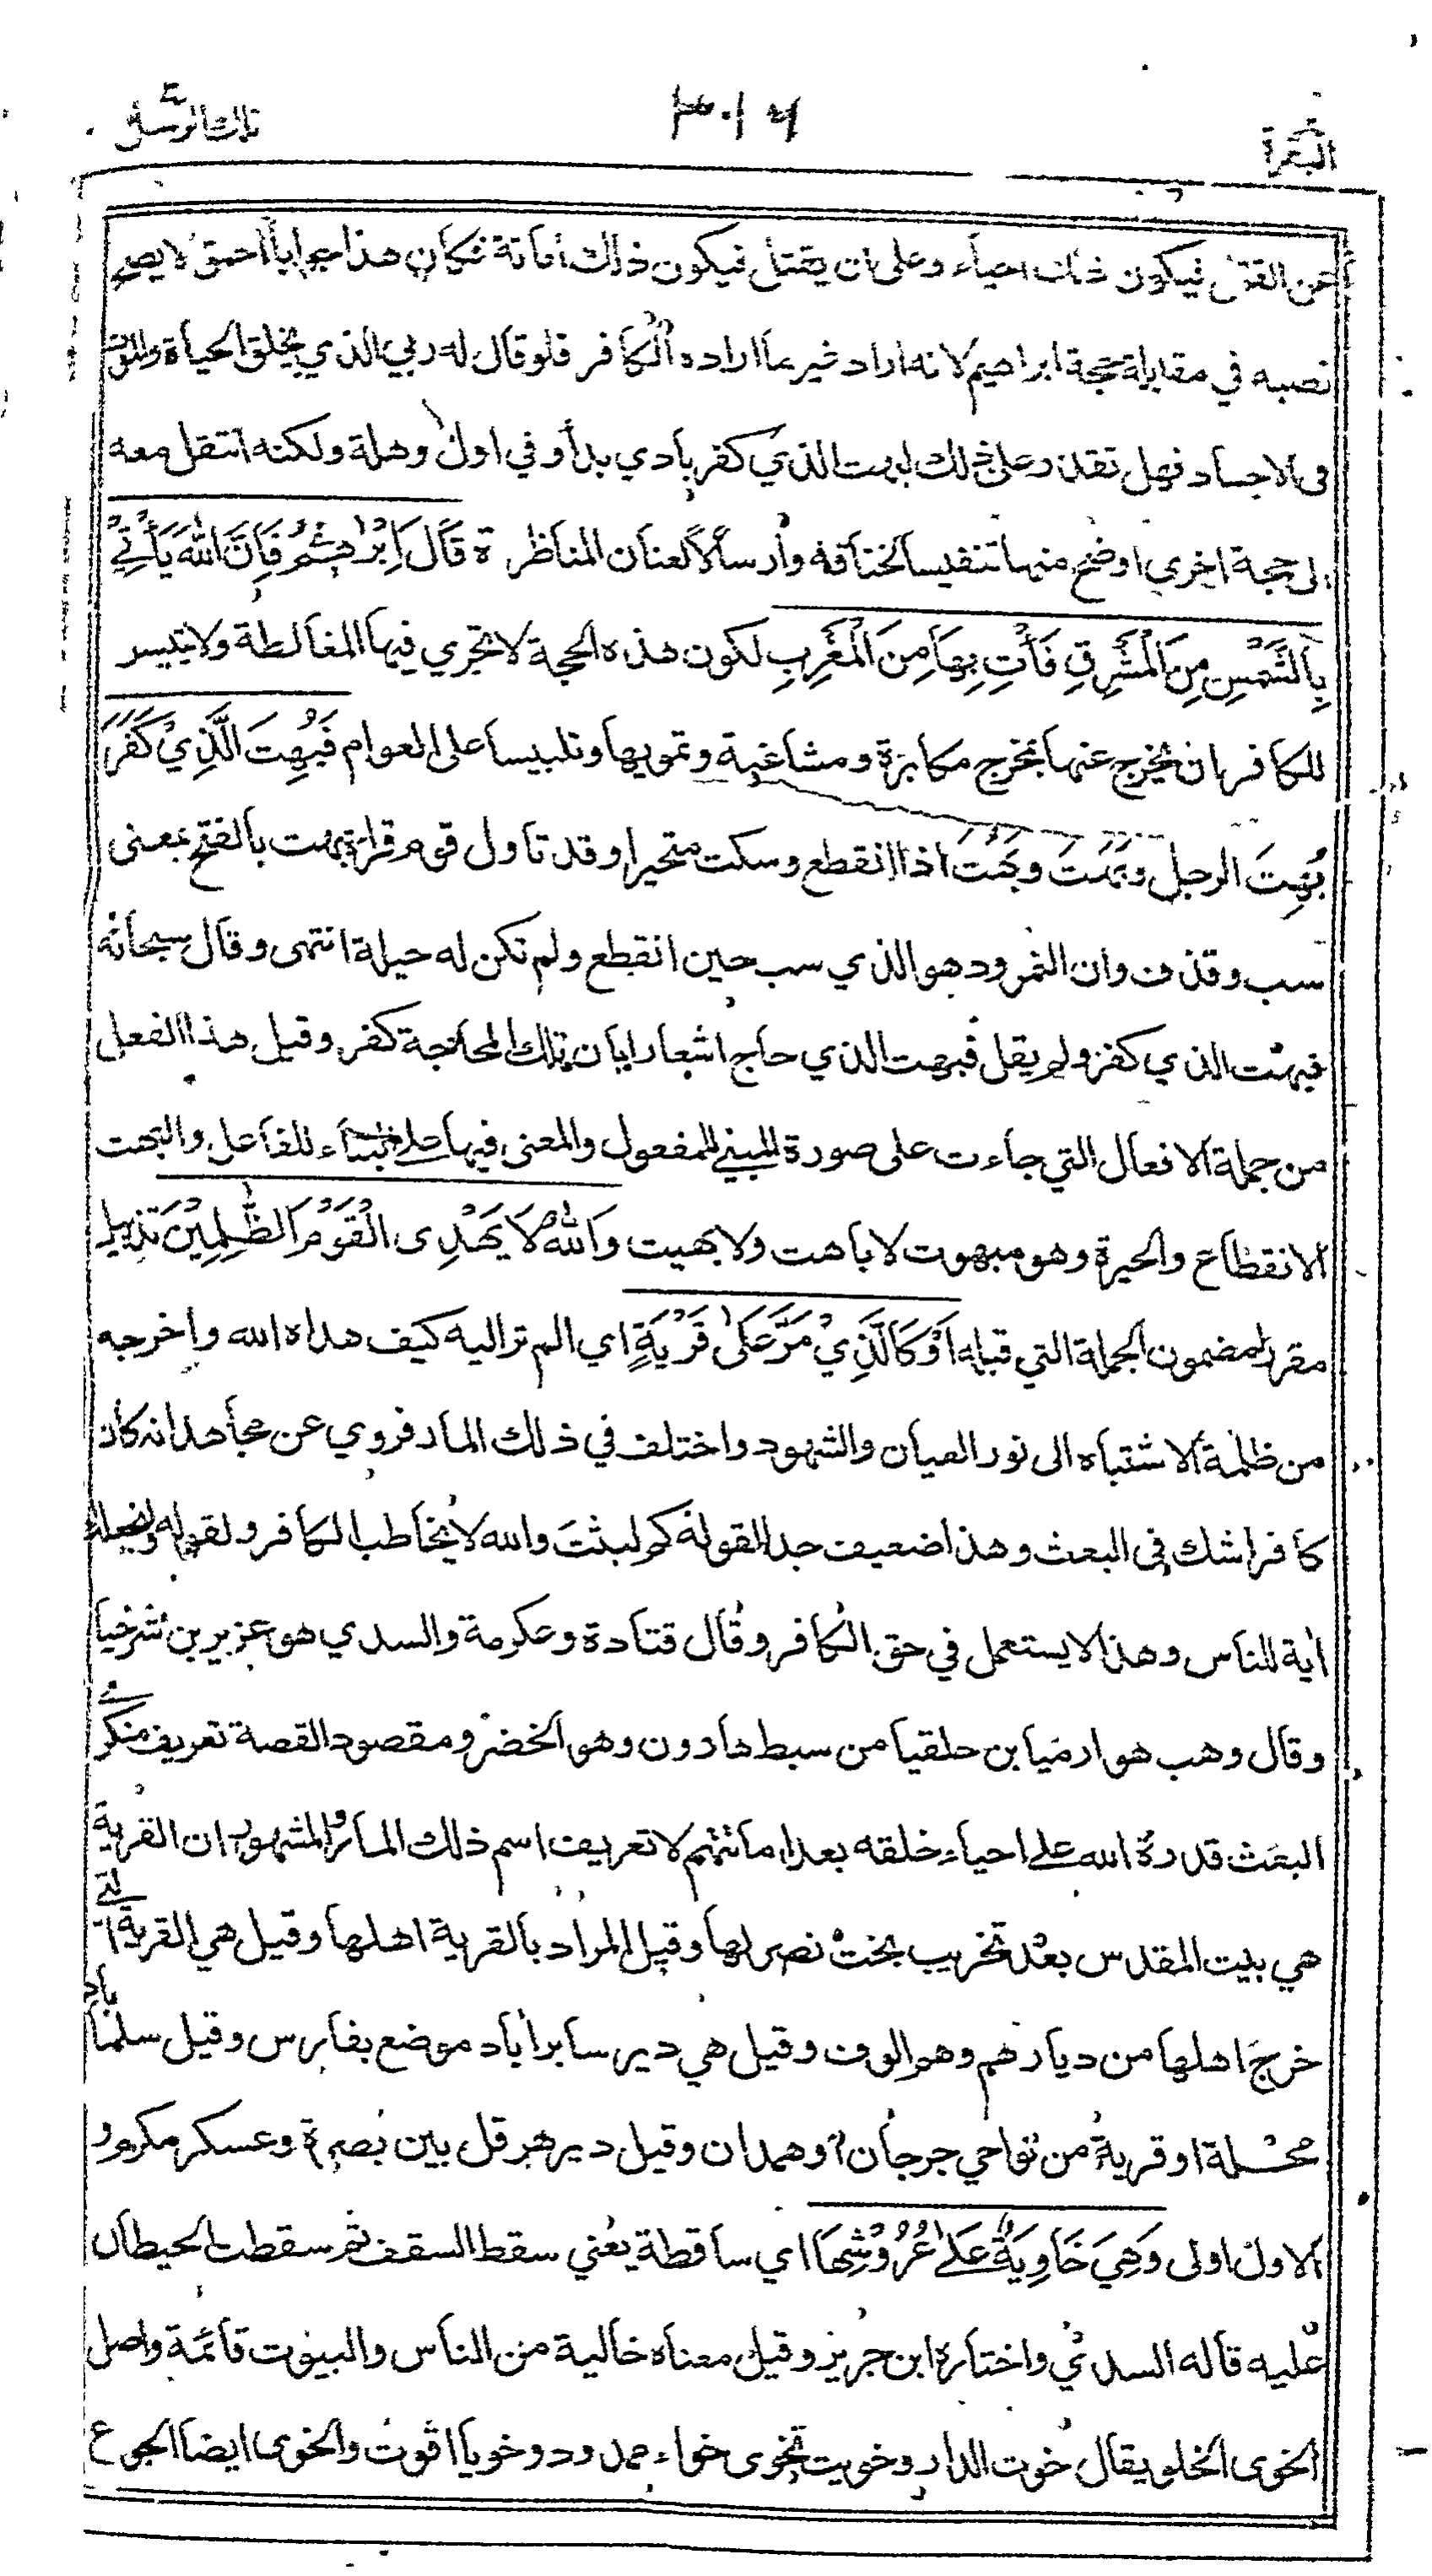 البقرة
٣٠١٦
تلك الرسل
عن القتل فيكون ذلك احياء وعلى ان يقتل فيكون ذلك اماتة فكان هذا جوابا احمق لا يصح
نصبه في مقابلة حجة ابراهيم لانه اراد غير ما اراده الكافر فلو قال له ربي الذي يخلق الحياة والموت
فى الاجساد فهل تقدر على ذلك لبهت الذي كفر بادي بدأ وفي اول وهلة ولكنه انتقل معه
الى حجة اخرى اوضح منها تنفيسا لخناقه وارسالا لعنان المناظرة قَالَ اِبْرٰهٖمُ فَاِنَّ اللّٰهَ يَأْتِيْ
بِالشَّمْسِ مِنَ الْمَشْرِقِ فَأْتِ بِهَا مِنَ الْمَغْرِبِ لكون هذه الحجة لا تجري فيها المغالطة ولا يتيسر
للكافر ان يخرج عنها بمخرج مكابرة ومشاغبة وتمويها وتلبيسا على العوام فَبُهِتَ الَّذِيْ كَفَرَ
بُهِتَ الرجل وبَهُتَ وبَهَتَ اذا انقطع وسكت متحيرا وقد تاول قوم قراءة بهت بالفتح بمعنى
سب وقذف وان النمرود هو الذي سب حين انقطع ولم تكن له حيلة انتهى وقال سبحانه
فبهت الذي كفر ولم يقل فبهت الذي حاج اشعارا بان تلك المحاجة كفر وقيل هذا الفعل
من جملة الافعال التي جاءت على صورة المبني للمفعول والمعنى فيها على البناء للفاعل والبهت
الانقطاع والحيرة وهو مبهوت لا باهت ولا بهيت وَاللّٰهُ لَا يَهْدِى الْقَوْمَ الظّٰلِمِيْنَ تذييل
مقرر لمضمون الجملة التي قبله اَوْ كَالَّذِيْ مَرَّ عَلٰى قَرْيَةٍ اي الم تر اليه كيف هداه الله واخرجه
من ظلمة الاشتباه الى نور العيان والشهود واختلف في ذلك المار فروي عن مجاهد انه كان
كافرا شك في البعث وهذا ضعيف جدا لقوله كم لبثت والله لا يخاطب الكافر ولقوله ولنجعلك
اية للناس وهذا لا يستعمل في حق الكافر وقال قتادة وعكرمة والسدي هو عزير بن شرخيا
وقال وهب هو ارميا بن حلقيا من سبط هارون وهو الخضر ومقصود القصة تعريف منكري
البعث قدرة الله على احياء خلقه بعد اماتتهم لا تعريف اسم ذلك المار والمشهور ان القرية
هي بيت المقدس بعد تخريب بخت نصر لها وقيل المراد بالقرية اهلها وقيل هي القرية التي
خرج اهلها من ديارهم وهو الوف وقيل هي دير سابراباد موضع بفارس وقيل سلماباد
محلة او قرية من نواحي جرجان او همدان وقيل دير هرقل بين بصرة وعسكر مكرم و
الاول اولى وَهِيَ خَاوِيَةٌ عَلٰى عُرُوْشِهَا اي ساقطة يعني سقط السقف ثم سقطت الحيطان
عليه قاله السدي واختاره ابن جرير وقيل معناه خالية من الناس والبيوت قائمة واصل
الخوى الخلو يقال خوت الدار وخويت تخوى خواء ممدود وخويا اقوت والخوى ايضا الجوع